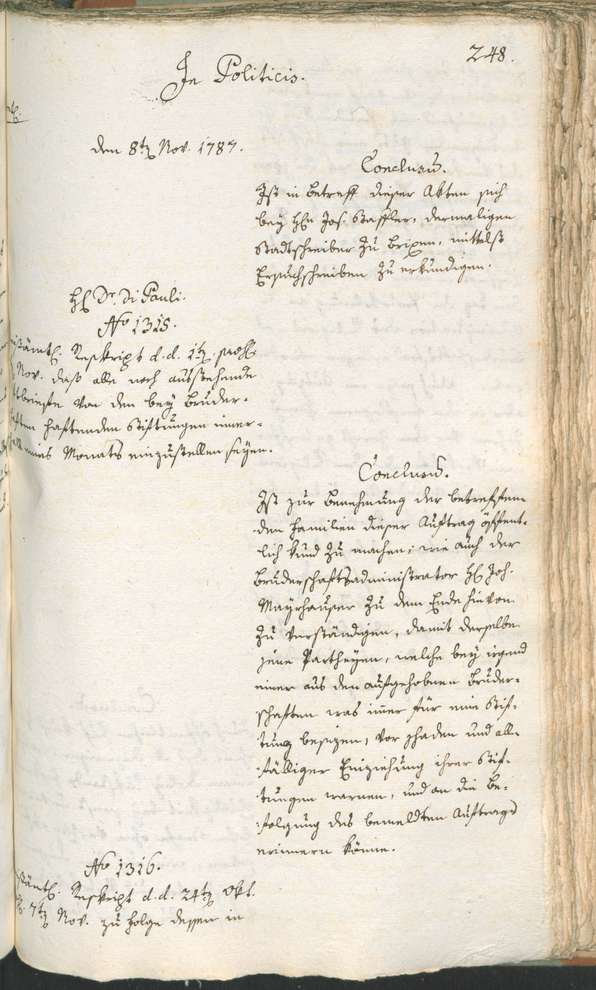 248.
In Politicis.
den 8t Nov. 1787.
Conclusum.
Ist in betreff dieser Akten sich
bey H. Jos. Staffler, dermaligen
Stadtschreiber zu Brixen, mittelst
Ersuchschreiben zu erkundigen.
H. Dr. Di Pauli.
No 1315.
Reskript d.d. 1t
Nov. daß alle noch ausstehende
von den bey Bruder-
haftenden Stiftungen inner-
eines Monats einzustellen seyen.
Conclusum.
Ist zur Benehmung der betreffen-
den Familien dieser Auftrag öffent-
lich kund zu machen; wie auch der
Bruderschaftsadministrator H. Joh.
Mayrhauser zu dem Ende hievon
zu verständigen, damit derselbe
jene Partheyen, welche bey irgend
einer aus den aufgehobenen Bruder-
schaften was immer für eine Stif-
tung besizen, vor schaden und all-
fälliger Einziehung ihrer Stif-
tungen warnen, und an die Be-
folgung des bemeldten Auftrags
erinnern könne.
No 1316.
Reskript d.d. 24t Okt.
7t Nov. zu folge dessen in